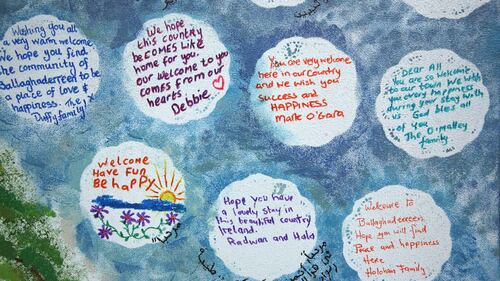 Wishing you all
a very warm welcome
We hope you find
the community of
Ballaghaderreen to be
a place of love &
happiness. The
Duffy family!
We hope
this country
beComes like
home for you.
our welcome to you
comes from our
hearts
Debbie
You are very welcome
here in our country
and we wish you
success and
HAPPINESS
Mark O'Gara
Dear All
You are so Welcome
to our town. We wish
you every happiness
during your stay with
us. God bless all
of you
The O'Malley
family
Welcome
Have Fun
Be happy
Hope you have
a lovely stay in
this beautiful country
Ireland.
Radwan and Hala
Welcome to
Ballaghaderreen
Hope you will find
Peace and happiness
Here
Holohan Family